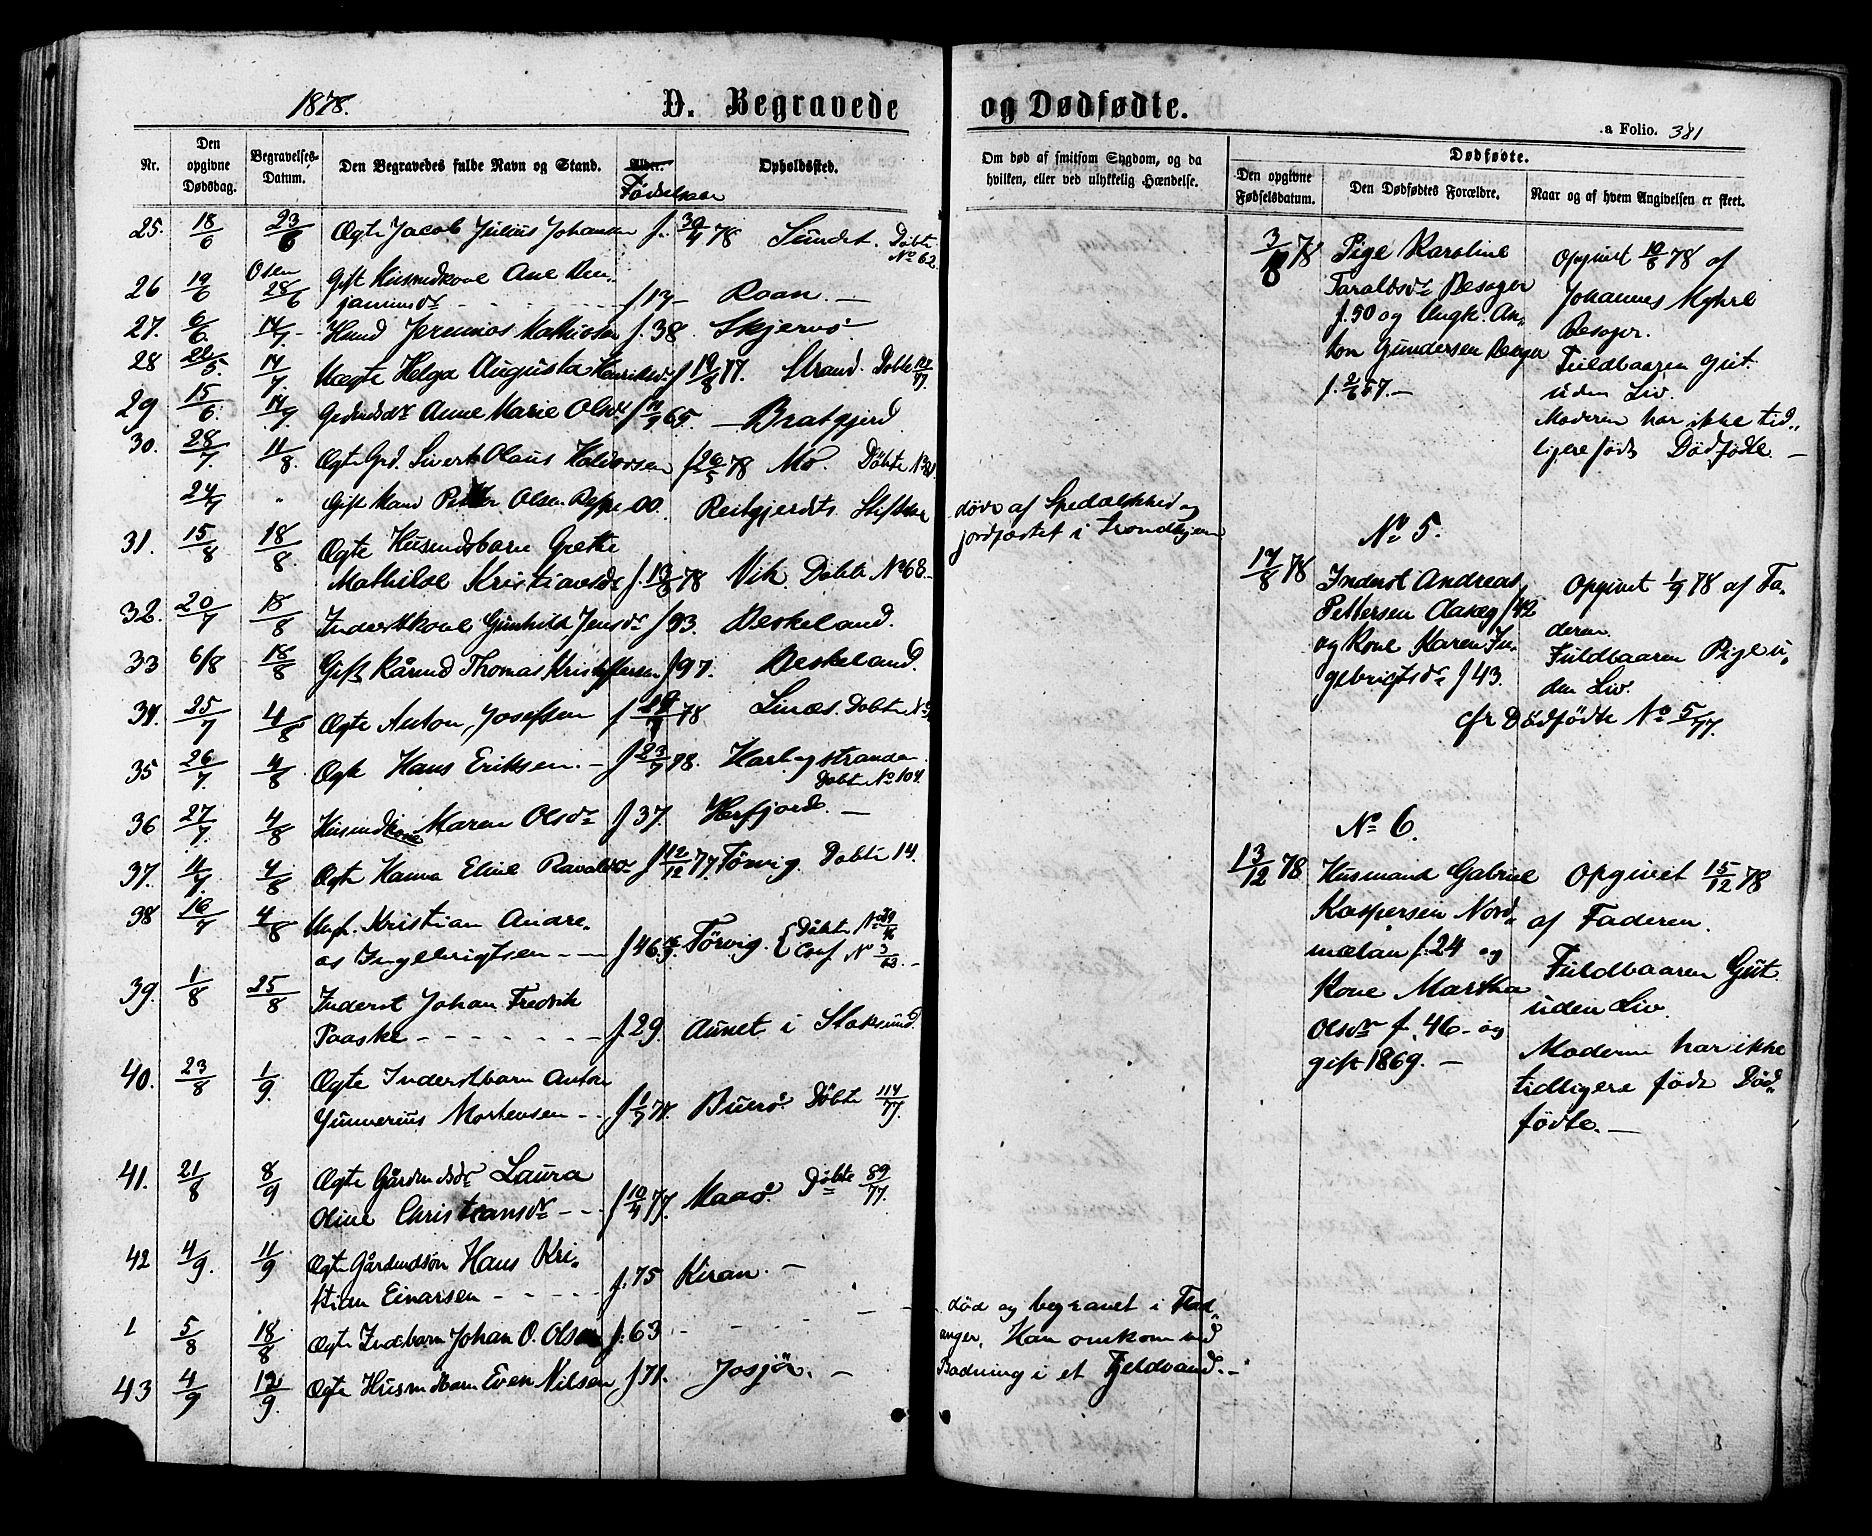 1878.
D. Begravede
og Dødfødte.
a Folio. 381
Nr.
Den opgivne Dødsdag.
Begravelses-Datum.
Den Begravedes fulde Navn og Stand.
Alder.
Fødselsaar
Opholdssted.
Om død af smitsom Sygdom, og da hvilken, eller ved ulykkelig Hændelse.
Dødfødte.
Den opgivne Fødselsdatum.
Den Dødfødtes Forældre.
Naar og af hvem Angivelsen er skeet.
25. 18/6 23/6 Ægte Jacob Julius Johansen f. 30/4 78 Sundet. Döbte No 62
26 19/6 28/6 Gift Husmdkone Ane Ben-
jaminsdr f 17 Roan. —
27. 6/6. 14/7 Jeremias Mathiasen f. 38 Skjervö
28 14/7. Uægte Helga Augusta Henriksdr f 19/8 77. Strand. Döbte
29 15/6. 14/7 Anne Marie Olsdr 65. Bratgjerd
30. 28/7 11/8. Ægte Sivert Olaus Haldorsen f 26/5 78 Mo. Döbte
24/7 " Gift Mand Petter Olsen Reppe 00. Reitgjerdets Stiftelse
döde af Spedalskhed og
jordfæstet i Trondhjem
31. 15/8 18/8. Ægte Husmdsbarn Grethe
Mathilde Kristiansdr f. 13/8 78 Vik Döbte No 68.
32. 20/7 18/8 Inderstkone Gunhild Jensdr f 93. Beskeland.
33 6/8 18/8 Gift Kårmd Thomas Kristoffersen f 97. Beskeland.
34. 25/7 4/8 Ægte Anton Josefsen 78 Linæs. Döbte
35 26/7. 4/8 Ægte Hans Eriksen. — f 23/7 78. Harbagstranden
Döbte No 104.
36 27/7. 4/8 Husmdkone Maren Olsdr f 37. Hofjord. —
37. 11/7. 4/8 Ægte Hanna Eline f 12/12 77. Törvig. Döbte 14.
38 16/7 4/8 Ungk. Kristian Andre-
as Ingebrigtsen — f 46. Törvig. { Döbte No
Conf. N 3/63. —
39. 1/8 25/8 Inderst Johan Fredrik
Paaske — f. 29. Aunet i Stoksund.
40. 23/8 1/9. Ægte Inderstbarn Anton
Gunnerius Mortensen — f 1/7 77. Buerö. Döbte 114/77.
41. 21/8 8/9 Ægte Gårdmdsdr Laura
Oline Christiansdr — f 10/4 77. Maasö. Döbte 89/77.
42 4/9. 11/9 Ægte Gårdmdsön Hans Kri-
stian Einarsen — f. 75 Kiran. —
1 5/8 18/8 Ægte Indstbarn Johan O. Olsen f. 63
död og begravet i Flad-
anger. Han omkom ved
Badning i et Fjeldvand. —
43 4/9 12/9 Ægte Husmdbarn Even Nilsen f 71. Josjör. —
3/8 78 Pige Karoline
Taraldsdr Besager
f. 50 og Ungk. An-
ton Gundersen Besager
f. 2/6 57. —
Opgivet 10/8 78 af
Johannes Myhre
Besager.
Fuldbaaren Gut
uden Liv.
Moderen har ikke tid-
ligere födt Dödfödte. —
No 5.
17/8 78 Inderst Andreas
Pettersen Aaseg f 42
og Kone Karen In-
gebrigtsdr f 43.
Opgivet 1/9 78 af Fa-
deren.
Fuldbaaren Pige u-
den Liv.
cfr Dödfödte No 5/77.
No 6.
13/12 78 Husmand Gabriel
Kaspersen Nord-
mælan f. 24 og
Kone Martha
Olsdr f. 46 – og
gift 1869. —
Opgivet 15/12 78
af Faderen.
Fuldbaaren Gut
uden Liv.
Moderen har ikke
tidligere födt Död-
födte. —